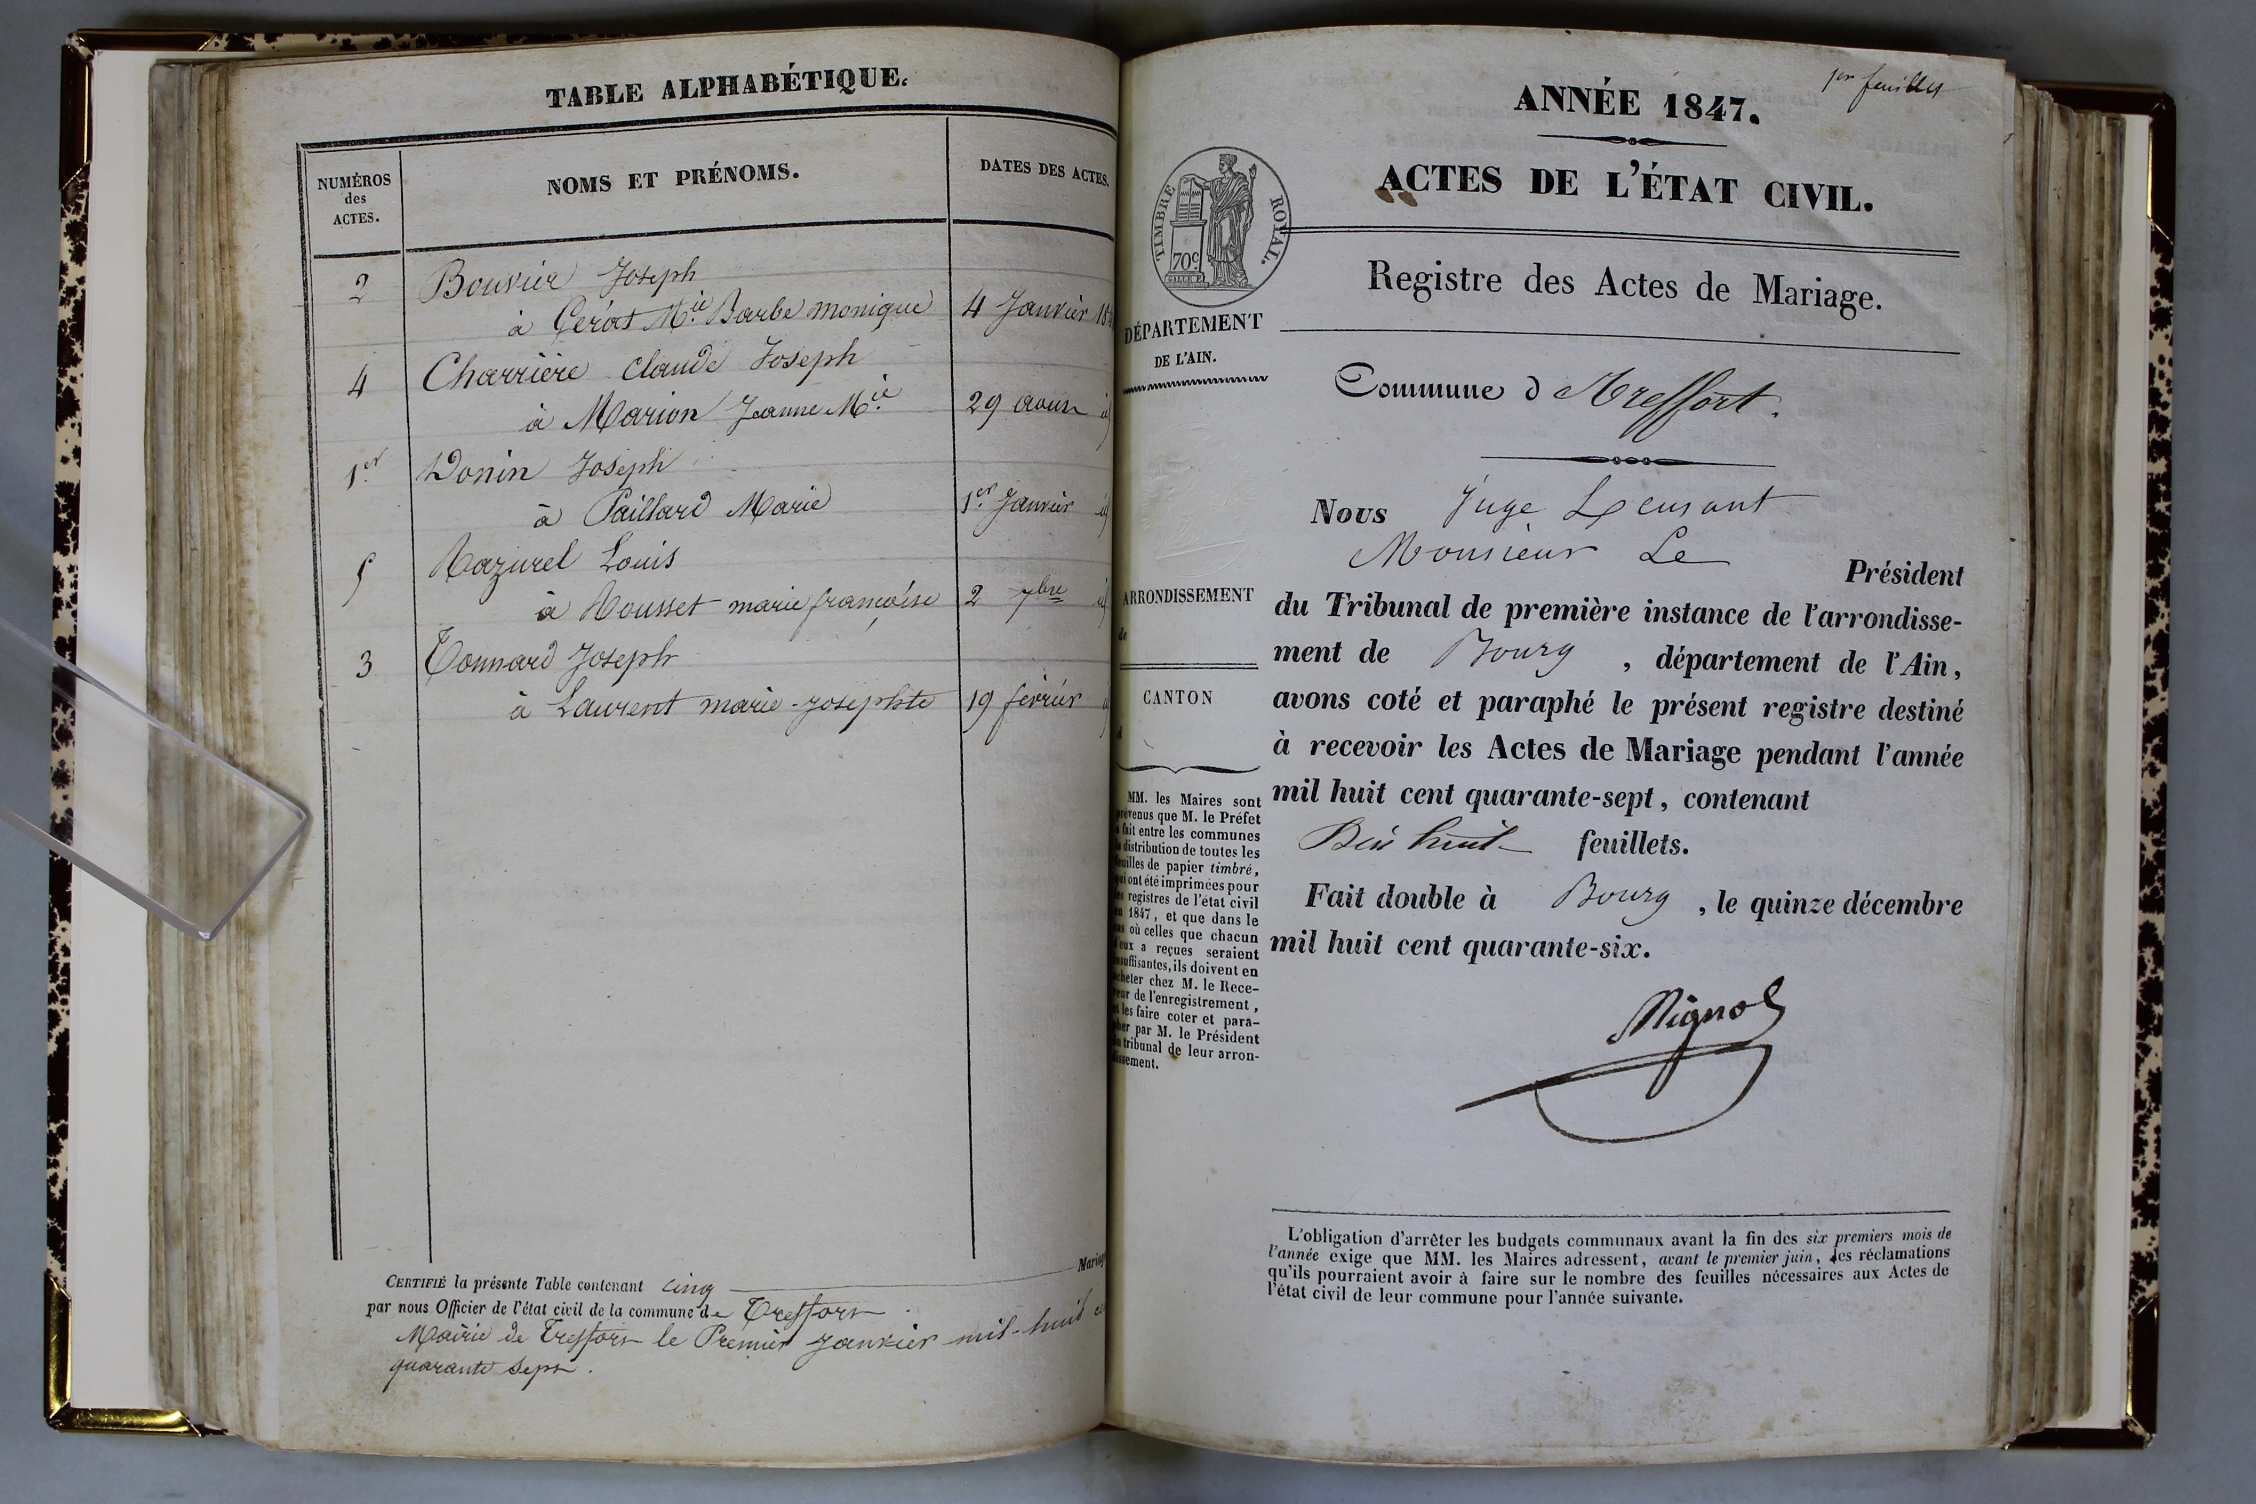 TABLE ALPHABÉTIQUE.
NUMÉROS
des
ACTES.
NOMS ET PRÉNOMS.
DATES DES ACTES.
2 Bouvier Joseph
à Gérat Mie Barbe monique 4 Janvier
4 Charrière Claude Joseph
à Marion Jeanne Mie 29 aout
1er Donin Joseph
à Paillard Marie 1er Janvier
5 Razurel Louis
à Rousset marie françoise 2 7bre
3 Tonnard Joseph
à Laurent marie-josephte 19 février
Mariage
CERTIFIÉ la présente Table contenant cinq
par nous Officier de l'état civil de la commune de Treffort
Mairie de Treffort le Premier Janvier mil-huit
quarante Sept.
1er feuillet
ANNÉE 1847.
ACTES DE L'ÉTAT CIVIL.
TIMBRE ROYAL.
70c
Registre des Actes de Mariage.
DÉPARTEMENT
DE L'AIN.
Commune d Treffort.
Nous Juge
Monsieur Le Président
ARRONDISSEMENT
de
du Tribunal de première instance de l'arrondisse-
ment de Bourg, département de l'Ain,
CANTON
avons coté et paraphé le présent registre destiné
à recevoir les Actes de Mariage pendant l'année
mil huit cent quarante-sept, contenant
Dix huit feuillets.
Fait double à Bourg, le quinze décembre
mil huit cent quarante-six.
MM. les Maires sont
prévenus que M. le Préfet
a fait entre les communes
la distribution de toutes les
feuilles de papier timbré,
qui ont été imprimées pour
les registres de l'état civil
en 1847, et que dans le
cas où celles que chacun
d'eux a reçues seraient
insuffisantes, ils doivent en
acheter chez M. le Rece-
veur de l'enregistrement,
et les faire coter et para-
pher par M. le Président
du tribunal de leur arron-
dissement.
L'obligation d'arrêter les budgets communaux avant la fin des six premiers mois de
l'année exige que MM. les Maires adressent, avant le premier juin, les réclamations
qu'ils pourraient avoir à faire sur le nombre des feuilles nécessaires aux Actes de
l'état civil de leur commune pour l'année suivante.